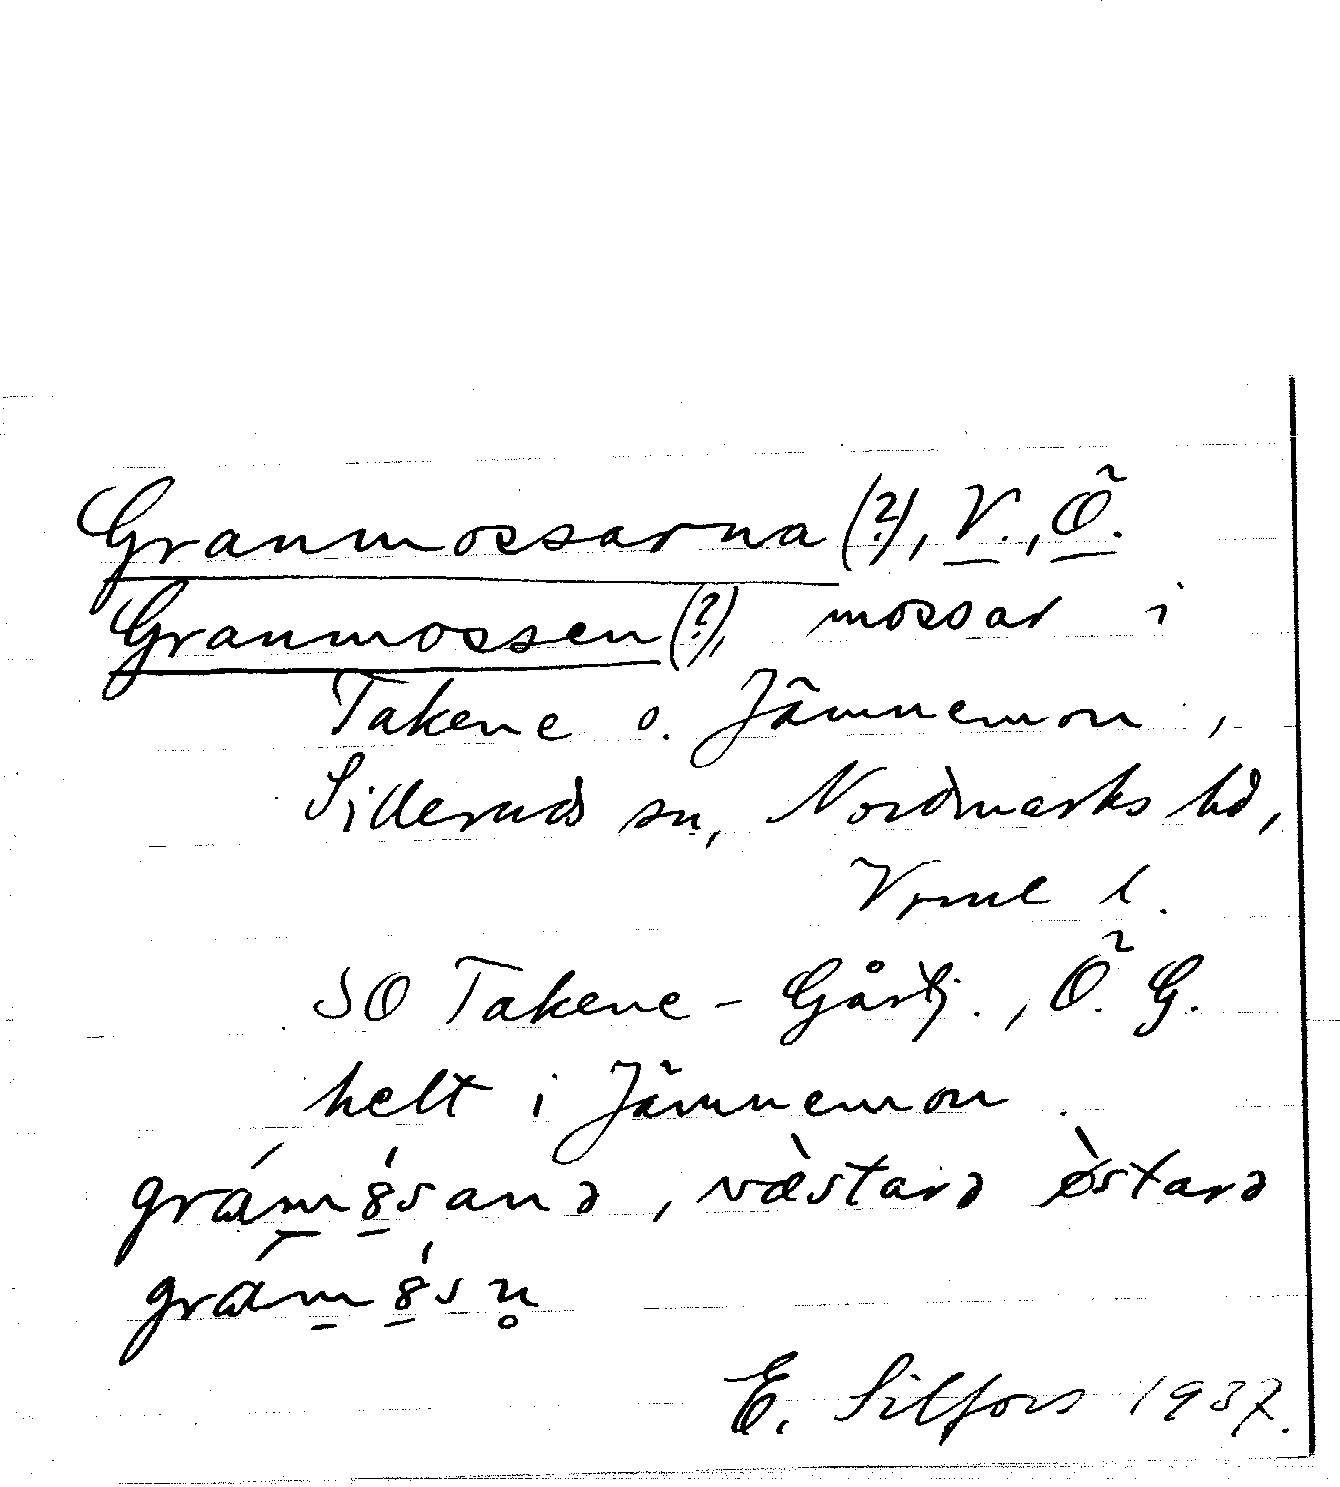 Granmossarna (?), V., Ö.
Granmossen (?), mossar i
Takene o. Jämnemon,
Silleruds sn, Nordmarks hd,
Vrml l.
SO Takene - Gårdsj., Ö. G.
helt i Jämnemon.
grám8́sanə, væ̀starə ø̀starə
grám8́sn̥
E. Silfors 1937.